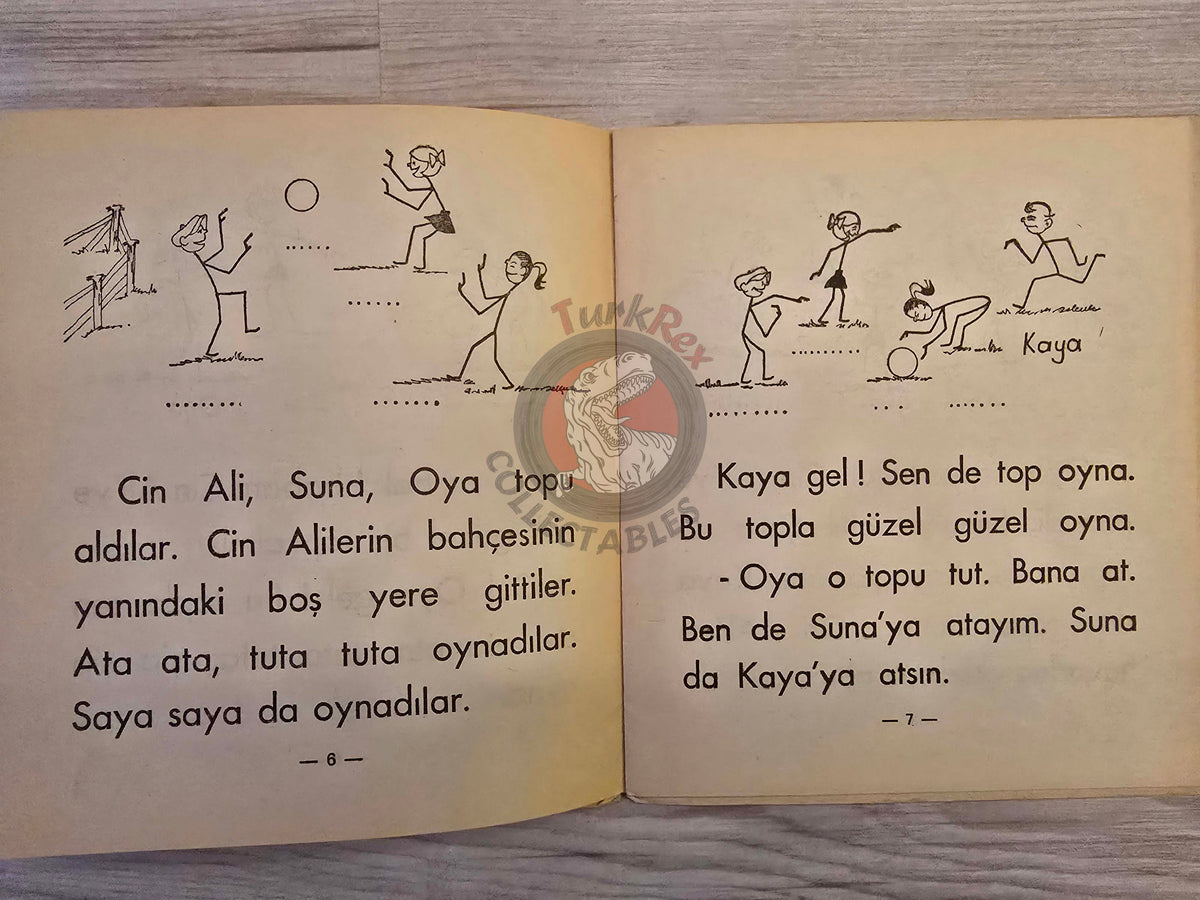 Cin Ali, Suna, Oya topu
aldılar. Cin Alilerin bahçesinin
yanındaki boş yere gittiler.
Ata ata, tuta tuta oynadılar.
Saya saya da oynadılar.
— 6 —
Kaya
Kaya gel! Sen de top oyna.
Bu topla güzel güzel oyna.
- Oya o topu tut. Bana at.
Ben de Suna'ya atayım. Suna
da Kaya'ya atsın.
— 7 —
TurkRex
COLLECTABLES